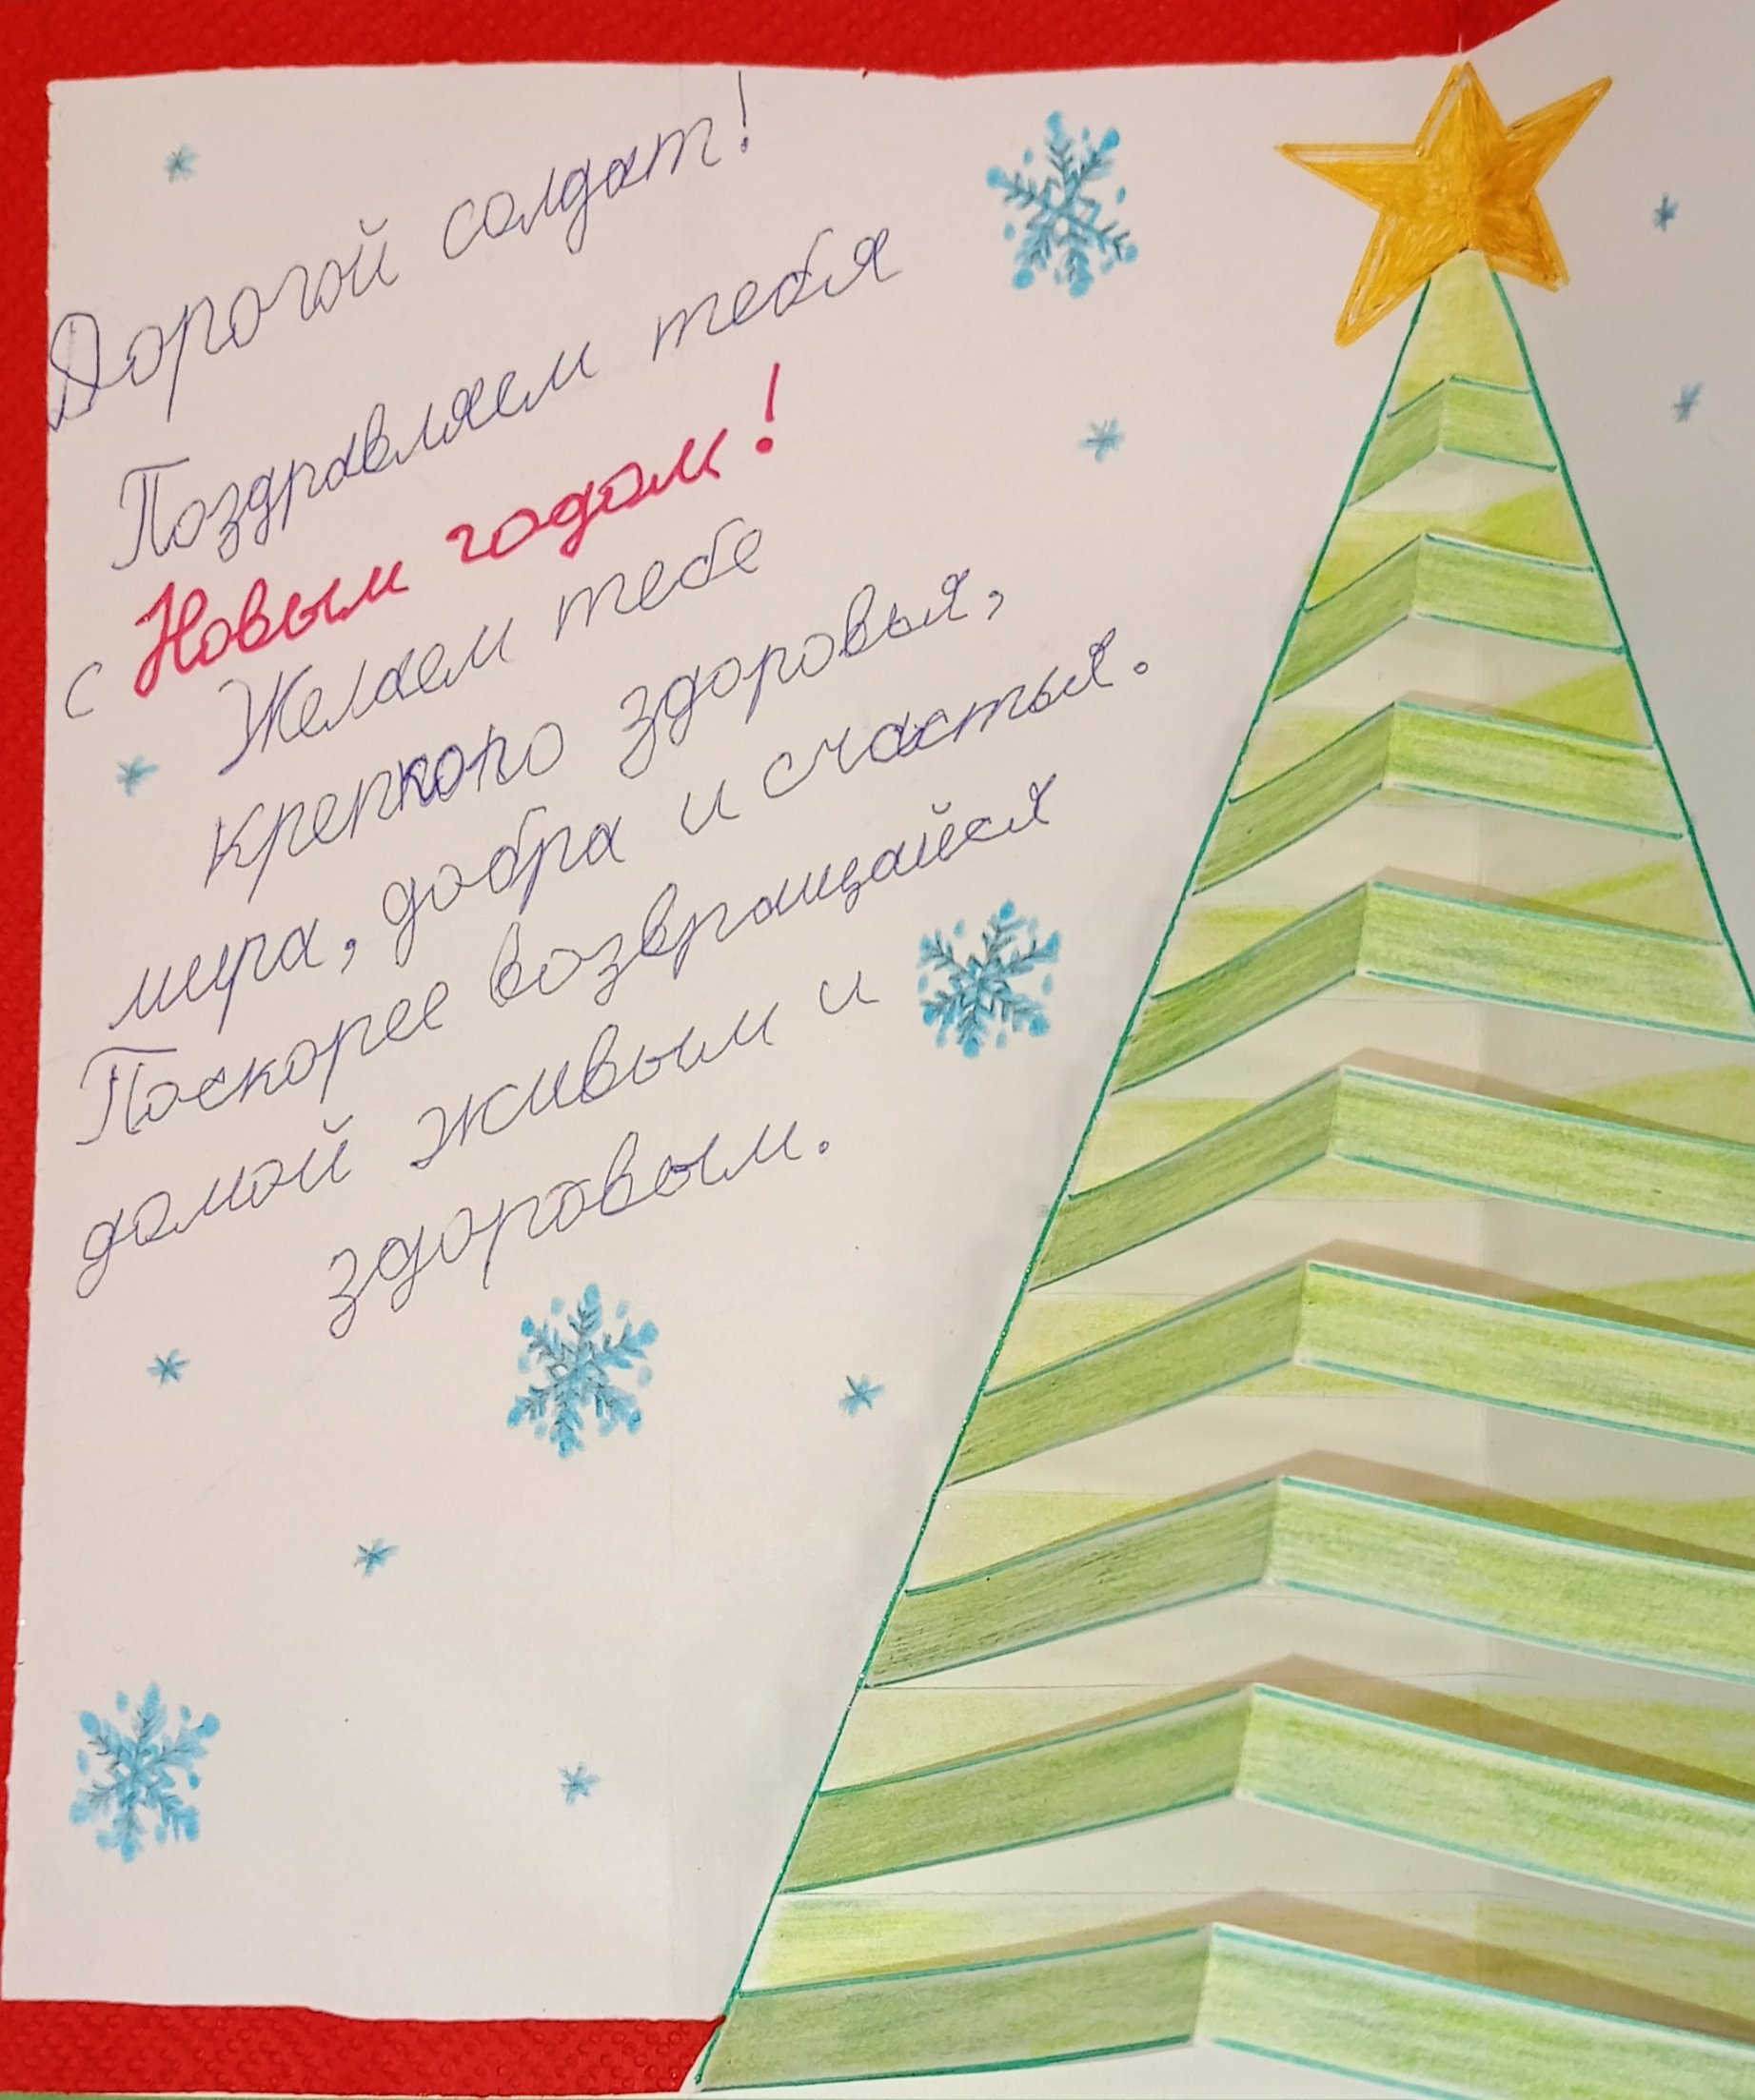 Дорогой солдат!
Поздравляем тебя
с Новым годом!
Желаем тебе
крепкого здоровья,
мира, добра и счастья.
Поскорее возвращайся
домой живым и
здоровым.